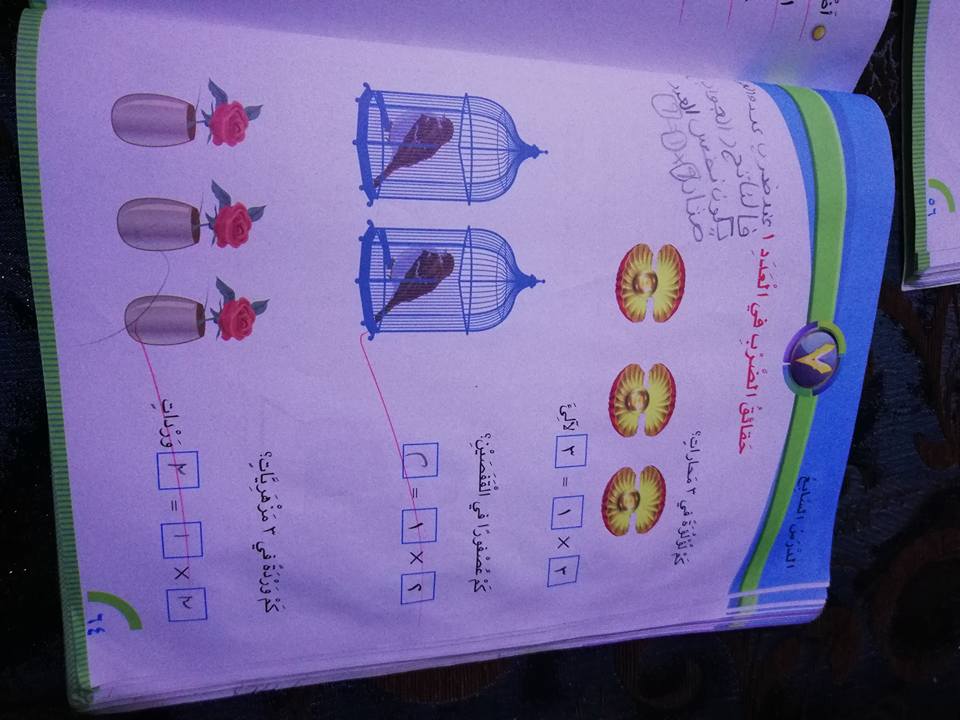 الدَّرْسُ السَّابِعُ
٧
حَقائِقُ الضَّرْبِ في الْعَدَدِ ١
عند ضرب
فالناتج
يكون نفس العدد
كَمْ لُؤْلُؤَةً في ٣ مَحاراتٍ؟
٣ × ١ = ٣ لآلِئَ
كَمْ عُصْفورًا في الْقَفَصَيْنِ؟
٢ × ١ = ٢
كَمْ وَرْدَةً في ٣ مَزْهَرِيّاتٍ؟
٣ × ١ = ٣ وَرْداتٍ
٦٤
٥٦